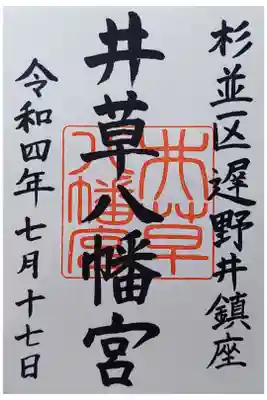 杉並区遅野井鎮座
井草八幡宮
令和四年七月十七日
井草八幡宮